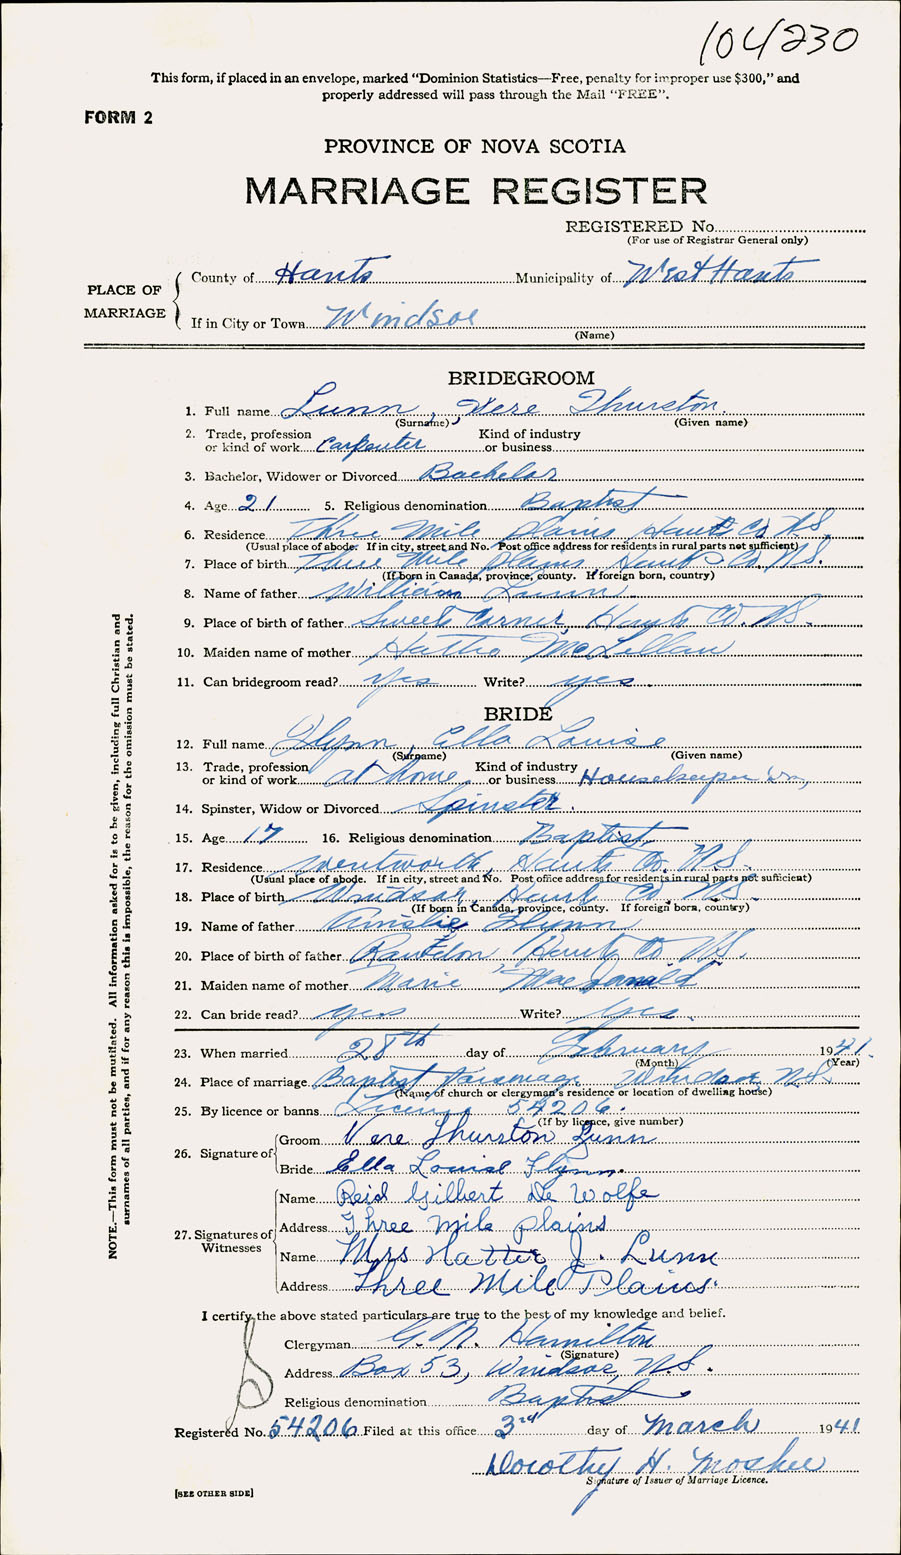 104230
This form, if placed in an envelope, marked “Dominion Statistics—Free, penalty for improper use $300,” and
properly addressed will pass through the Mail “FREE”.
FORM 2
PROVINCE OF NOVA SCOTIA
MARRIAGE REGISTER
REGISTERED No.
(For use of Registrar General only)
PLACE OF MARRIAGE
County of Hants Municipality of West Hants
If in City or Town Windsor
(Name)
BRIDEGROOM
1. Full name Lunn, Vere Thurston.
(Surname) (Given name)
2. Trade, profession or kind of work Carpenter Kind of industry or business
3. Bachelor, Widower or Divorced Bachelor
4. Age 21 5. Religious denomination Baptist
6. Residence Three Mile Plains Hants Co. N.S.
(Usual place of abode. If in city, street and No. Post office address for residents in rural parts not sufficient)
7. Place of birth Three Mile Plains Hants Co. N.S.
(If born in Canada, province, county. If foreign born, country)
8. Name of father William Lunn
9. Place of birth of father Sweet Corner, Hants Co. N.S.
10. Maiden name of mother Hattie McLellan
11. Can bridegroom read? yes Write? yes
BRIDE
12. Full name Flynn, Ella Louise
(Surname) (Given name)
13. Trade, profession or kind of work at home Kind of industry or business Housekeeper
14. Spinster, Widow or Divorced Spinster.
15. Age 17 16. Religious denomination Baptist
17. Residence Wentworth, Hants Co. N.S.
(Usual place of abode. If in city, street and No. Post office address for residents in rural parts not sufficient)
18. Place of birth Windsor, Hants Co. N.S.
(If born in Canada, province, county. If foreign born, country)
19. Name of father Ainslie Flynn
20. Place of birth of father Hants Co. N.S.
21. Maiden name of mother Marie MacDonald
22. Can bride read? yes Write? yes.
23. When married 28th day of February 1941.
(Month) (Year)
24. Place of marriage Baptist Parsonage Windsor N.S.
(Name of church or clergyman's residence or location of dwelling house)
25. By licence or banns License 54206.
(If by licence, give number)
26. Signature of
Groom Vere Thurston Lunn
Bride Ella Louise Flynn.
27. Signatures of Witnesses
Name Reid Gilbert De Wolfe
Address Three mile plains
Name Mrs Hattie J. Lunn
Address Three Mile Plains.
I certify the above stated particulars are true to the best of my knowledge and belief.
Clergyman G. N. Hamilton
(Signature)
Address Box 53, Windsor, N.S.
Religious denomination Baptist
Registered No. 54206 Filed at this office 3rd day of March 1941
Dorothy H. Mosher
Signature of Issuer of Marriage Licence.
[SEE OTHER SIDE]
NOTE.—This form must not be mutilated. All information asked for is to be given, including full Christian and
surnames of all parties, and if for any reason this is impossible, the reason for the omission must be stated.